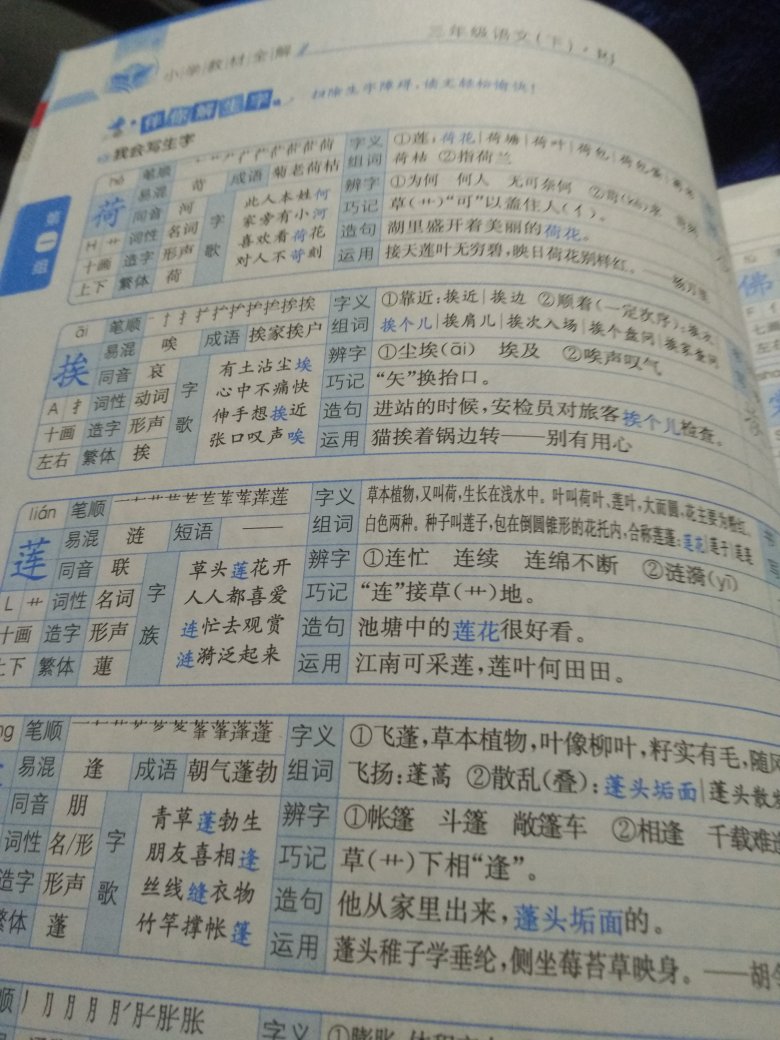 小学教材全解
三年级语文(下)·RJ
伴你解生字
扫除生字障碍,读文轻松愉快!
我会写生字
第一组
hé 笔顺
荷 易混 苛 成语 菊老荷枯
同音 河
H 艹 词性 名词
十画 造字 形声
上下 繁体 荷
字歌
此人本姓何
家旁有小河
喜欢看荷花
对人不苛刻
字义组词 ①莲:荷花|荷塘|荷叶|荷包|荷包蛋
荷枯 ②指荷兰
辨字 ①为何 何人 无可奈何
巧记 草(艹)“可”以盖住人(亻)。
造句 湖里盛开着美丽的荷花。
运用 接天莲叶无穷碧,映日荷花别样红。——杨万里
āi 笔顺
挨 易混 唉 成语 挨家挨户
同音 哀
A 扌 词性 动词
十画 造字 形声
左右 繁体 挨
字歌
有土沾尘埃
心中不痛快
伸手想挨近
张口叹声唉
字义组词 ①靠近:挨近|挨边 ②顺着(一定次序):挨次
挨个儿|挨肩儿|挨次入场|挨个盘问|挨家查问
辨字 ①尘埃(āi) 埃及 ②唉声叹气
巧记 “矢”换抬口。
造句 进站的时候,安检员对旅客挨个儿检查。
运用 猫挨着锅边转——别有用心
lián 笔顺
莲 易混 涟 短语 ——
同音 联
L 艹 词性 名词
十画 造字 形声
上下 繁体 蓮
字族
草头莲花开
人人都喜爱
连忙去观赏
涟漪泛起来
字义组词 草本植物,又叫荷,生长在浅水中。叶叫荷叶、莲叶,大而圆,花主要为粉红、
白色两种。种子叫莲子,包在倒圆锥形的花托内,合称莲蓬:莲花|莲子|
辨字 ①连忙 连续 连绵不断 ②涟漪(yī)
巧记 “连”接草(艹)地。
造句 池塘中的莲花很好看。
运用 江南可采莲,莲叶何田田。
笔顺
易混 逢 成语 朝气蓬勃
同音 朋
词性 名/形
造字 形声
繁体 蓬
字歌
青草蓬勃生
朋友喜相逢
丝线缝衣物
竹竿撑帐篷
字义组词 ①飞蓬,草本植物,叶像柳叶,籽实有毛,随风
飞扬:蓬蒿 ②散乱(叠):蓬头垢面|蓬头散发
辨字 ①帐篷 斗篷 敞篷车 ②相逢 千载难逢
巧记 草(艹)下相“逢”。
造句 他从家里出来,蓬头垢面的。
运用 蓬头稚子学垂纶,侧坐莓苔草映身。——胡令
字义 ①膨胀,体积变
佛